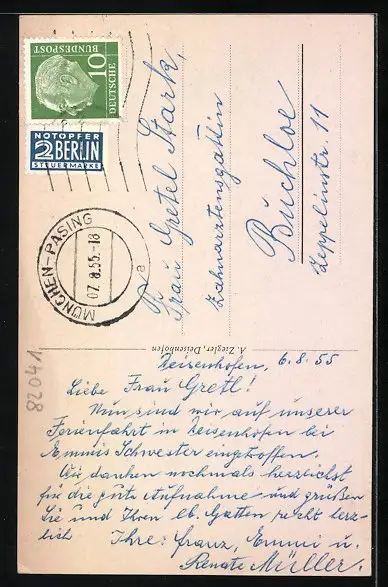 10
DEUTSCHE
BUNDESPOST
NOTOPFER
2 BERLIN
STEUERMARKE
MÜNCHEN-PASING
07.8.55.-18
a
Frau Gretel Stark,
Zahnarztensgattin
Buchloe
Zeppelinstr. 11
A. Ziegler, Deisenhofen
82041
Deisenhofen, 6.8.55
Liebe Frau Gretl!
Nun sind wir auf unserer
Ferienfahrt in Deisenhofen bei
Emmis Schwester eingetroffen.
Wir danken nochmals herzlichst
für die gute Aufnahme und grüßen
Sie und Ihren lb. Gatten recht herz-
lich Ihre: Franz, Emmi u.
Renate Müller.